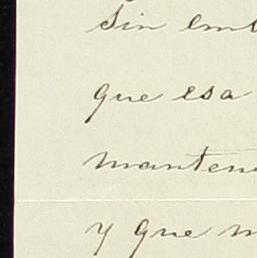 Sin emb
que esa
manten
y que m